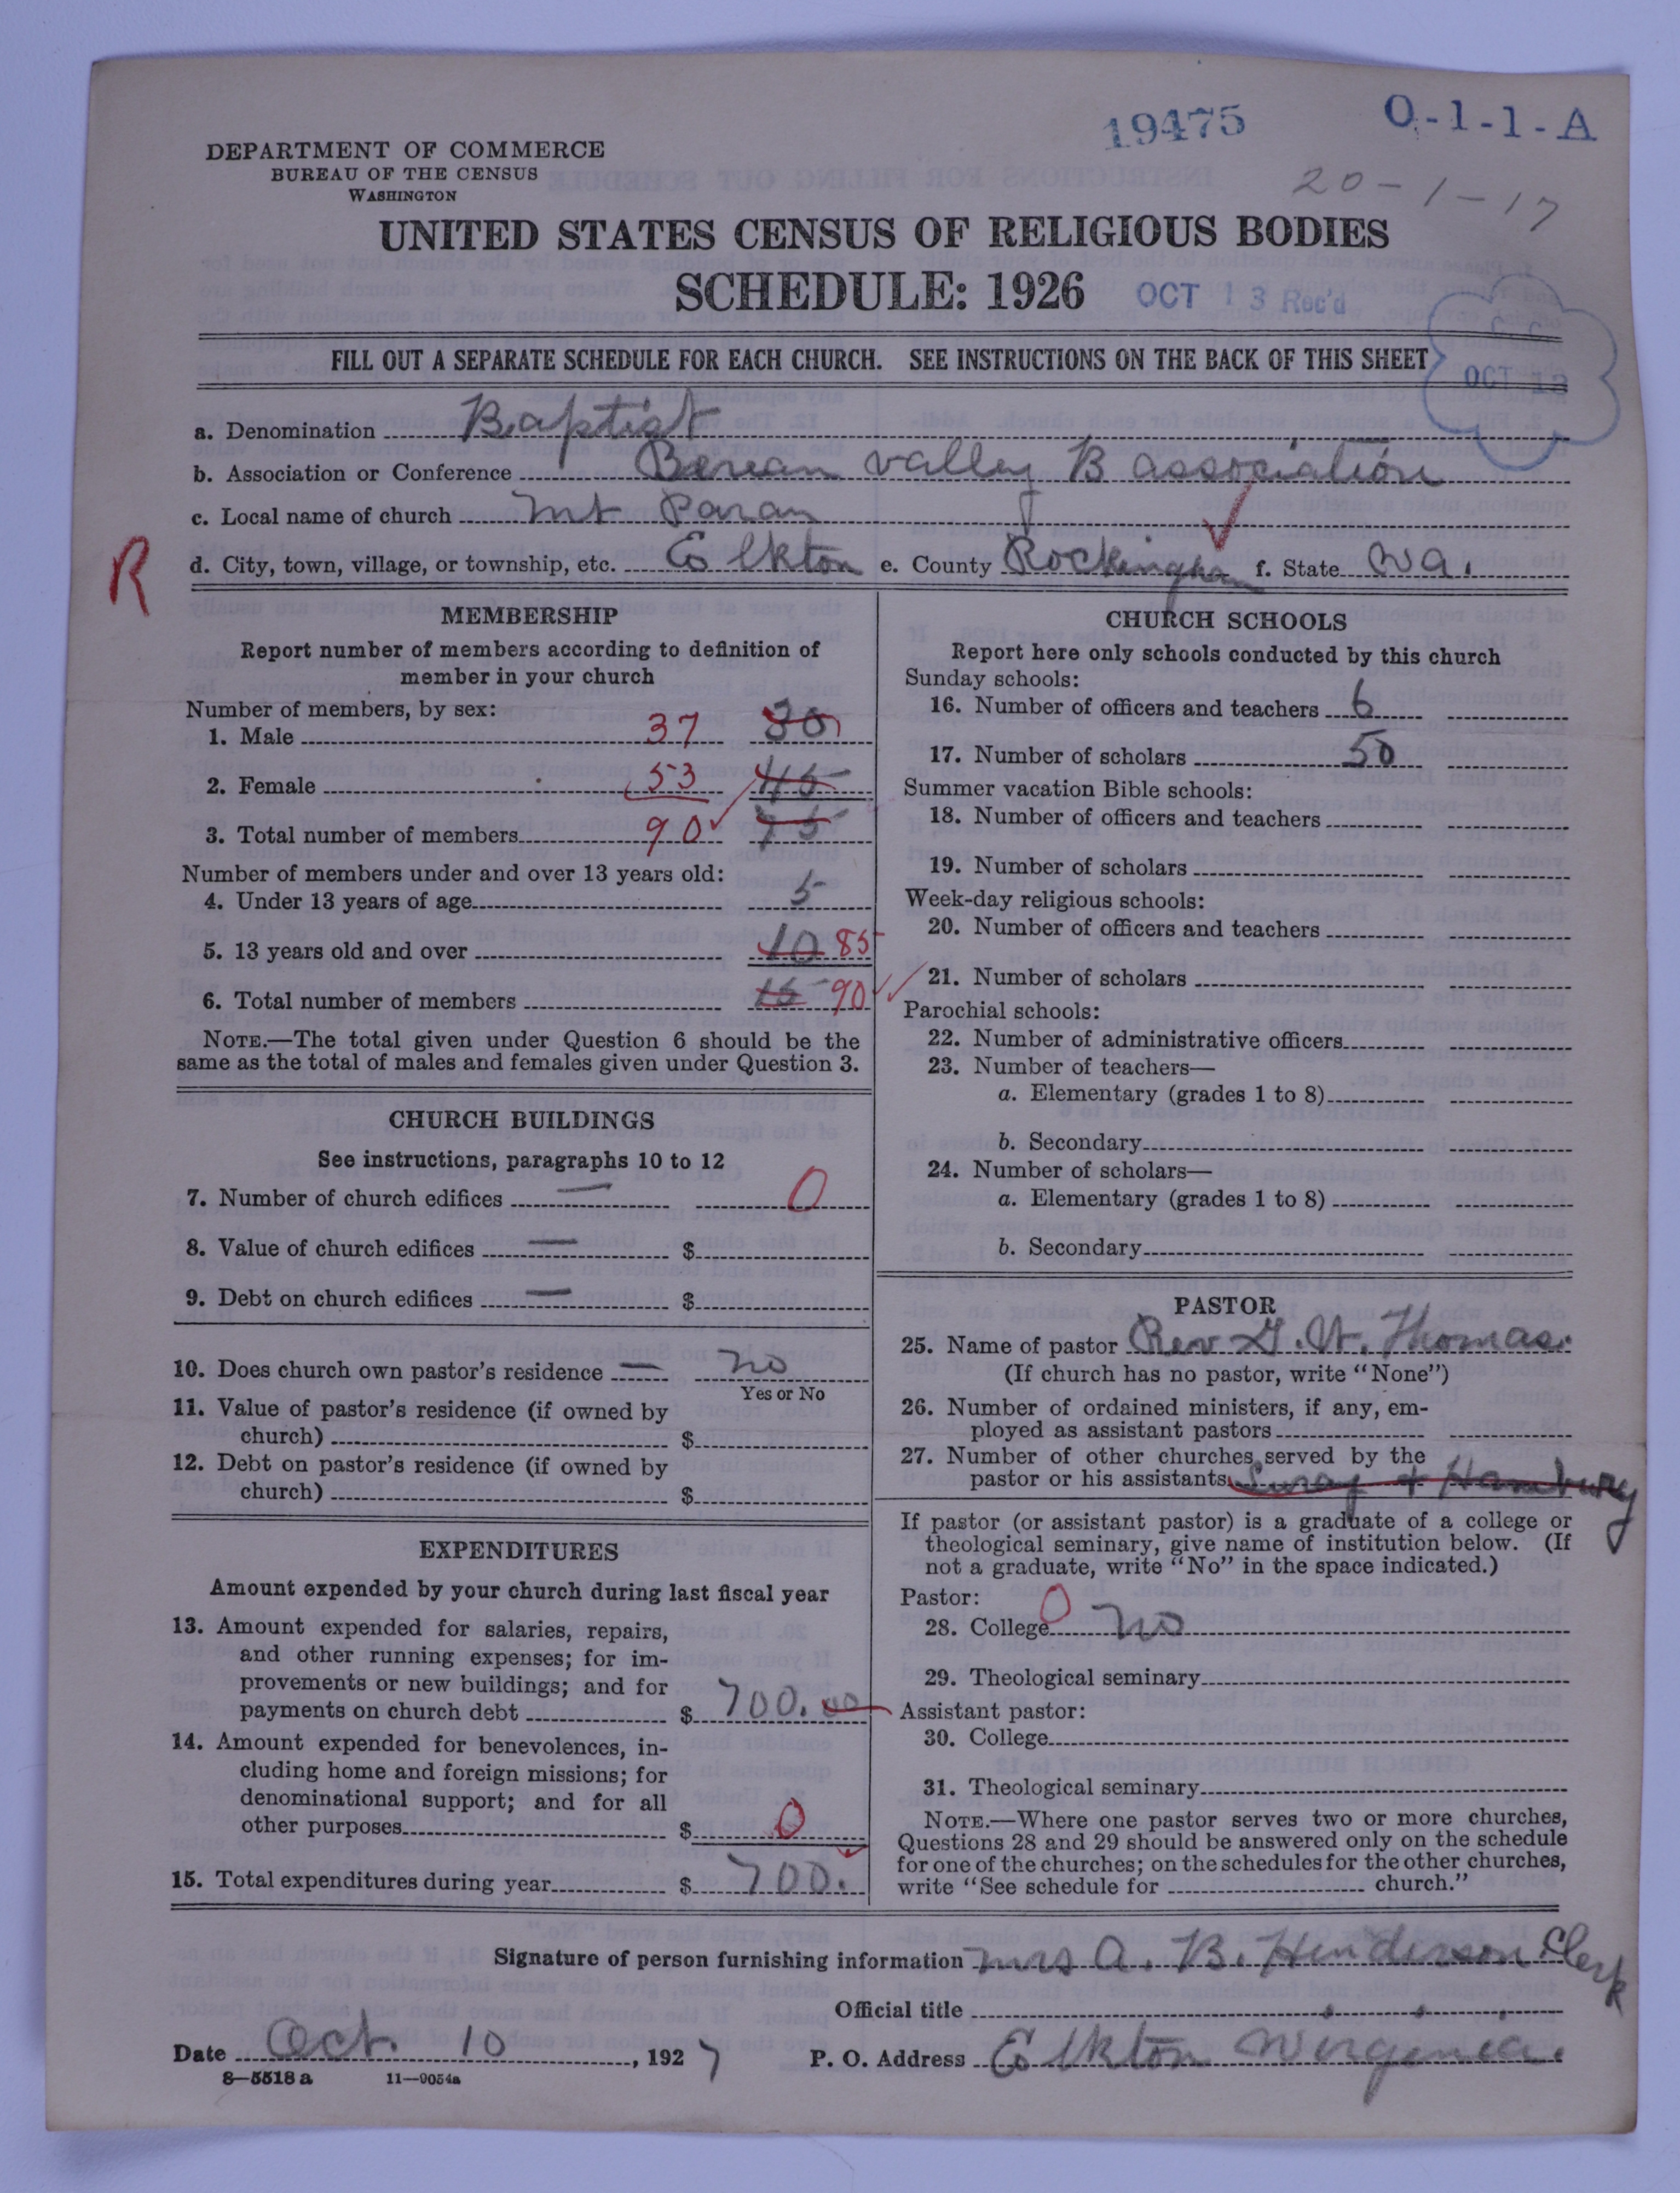 19475
O-1-1-A
20-1-17
DEPARTMENT OF COMMERCE
BUREAU OF THE CENSUS
WASHINGTON
UNITED STATES CENSUS OF RELIGIOUS BODIES
SCHEDULE: 1926
OCT 13 Rec'd
FILL OUT A SEPARATE SCHEDULE FOR EACH CHURCH. SEE INSTRUCTIONS ON THE BACK OF THIS SHEET
OCT 13
a. Denomination Baptist
b. Association or Conference Berean valley B association
c. Local name of church Mt Paran
R
d. City, town, village, or township, etc. Elkton e. County Rockingham f. State Va.
MEMBERSHIP
Report number of members according to definition of
member in your church
Number of members, by sex:
1. Male 37 30
2. Female 53 45
3. Total number of members 90 75
Number of members under and over 13 years old:
4. Under 13 years of age 5
5. 13 years old and over 10 85
6. Total number of members 15 90
NOTE.—The total given under Question 6 should be the
same as the total of males and females given under Question 3.
CHURCH BUILDINGS
See instructions, paragraphs 10 to 12
7. Number of church edifices — 0
8. Value of church edifices — $
9. Debt on church edifices — $
10. Does church own pastor's residence — no
Yes or No
11. Value of pastor's residence (if owned by
church) $
12. Debt on pastor's residence (if owned by
church) $
EXPENDITURES
Amount expended by your church during last fiscal year
13. Amount expended for salaries, repairs,
and other running expenses; for im-
provements or new buildings; and for
payments on church debt $ 700.00
14. Amount expended for benevolences, in-
cluding home and foreign missions; for
denominational support; and for all
other purposes $ 0
15. Total expenditures during year $ 700.
CHURCH SCHOOLS
Report here only schools conducted by this church
Sunday schools:
16. Number of officers and teachers 6
17. Number of scholars 50
Summer vacation Bible schools:
18. Number of officers and teachers
19. Number of scholars
Week-day religious schools:
20. Number of officers and teachers
21. Number of scholars
Parochial schools:
22. Number of administrative officers
23. Number of teachers—
a. Elementary (grades 1 to 8)
b. Secondary
24. Number of scholars—
a. Elementary (grades 1 to 8)
b. Secondary
PASTOR
25. Name of pastor Rev G. W. Thomas.
(If church has no pastor, write "None")
26. Number of ordained ministers, if any, em-
ployed as assistant pastors
27. Number of other churches served by the
pastor or his assistants Luray + Hamburg
If pastor (or assistant pastor) is a graduate of a college or
theological seminary, give name of institution below. (If
not a graduate, write "No" in the space indicated.)
Pastor:
28. College 0 no
29. Theological seminary
Assistant pastor:
30. College
31. Theological seminary
NOTE.—Where one pastor serves two or more churches,
Questions 28 and 29 should be answered only on the schedule
for one of the churches; on the schedules for the other churches,
write "See schedule for church."
Signature of person furnishing information Mrs A. B. Henderson Clerk
Official title
Date Oct. 10, 1927 P. O. Address Elkton Virginia.
8—5518 a 11—9054a